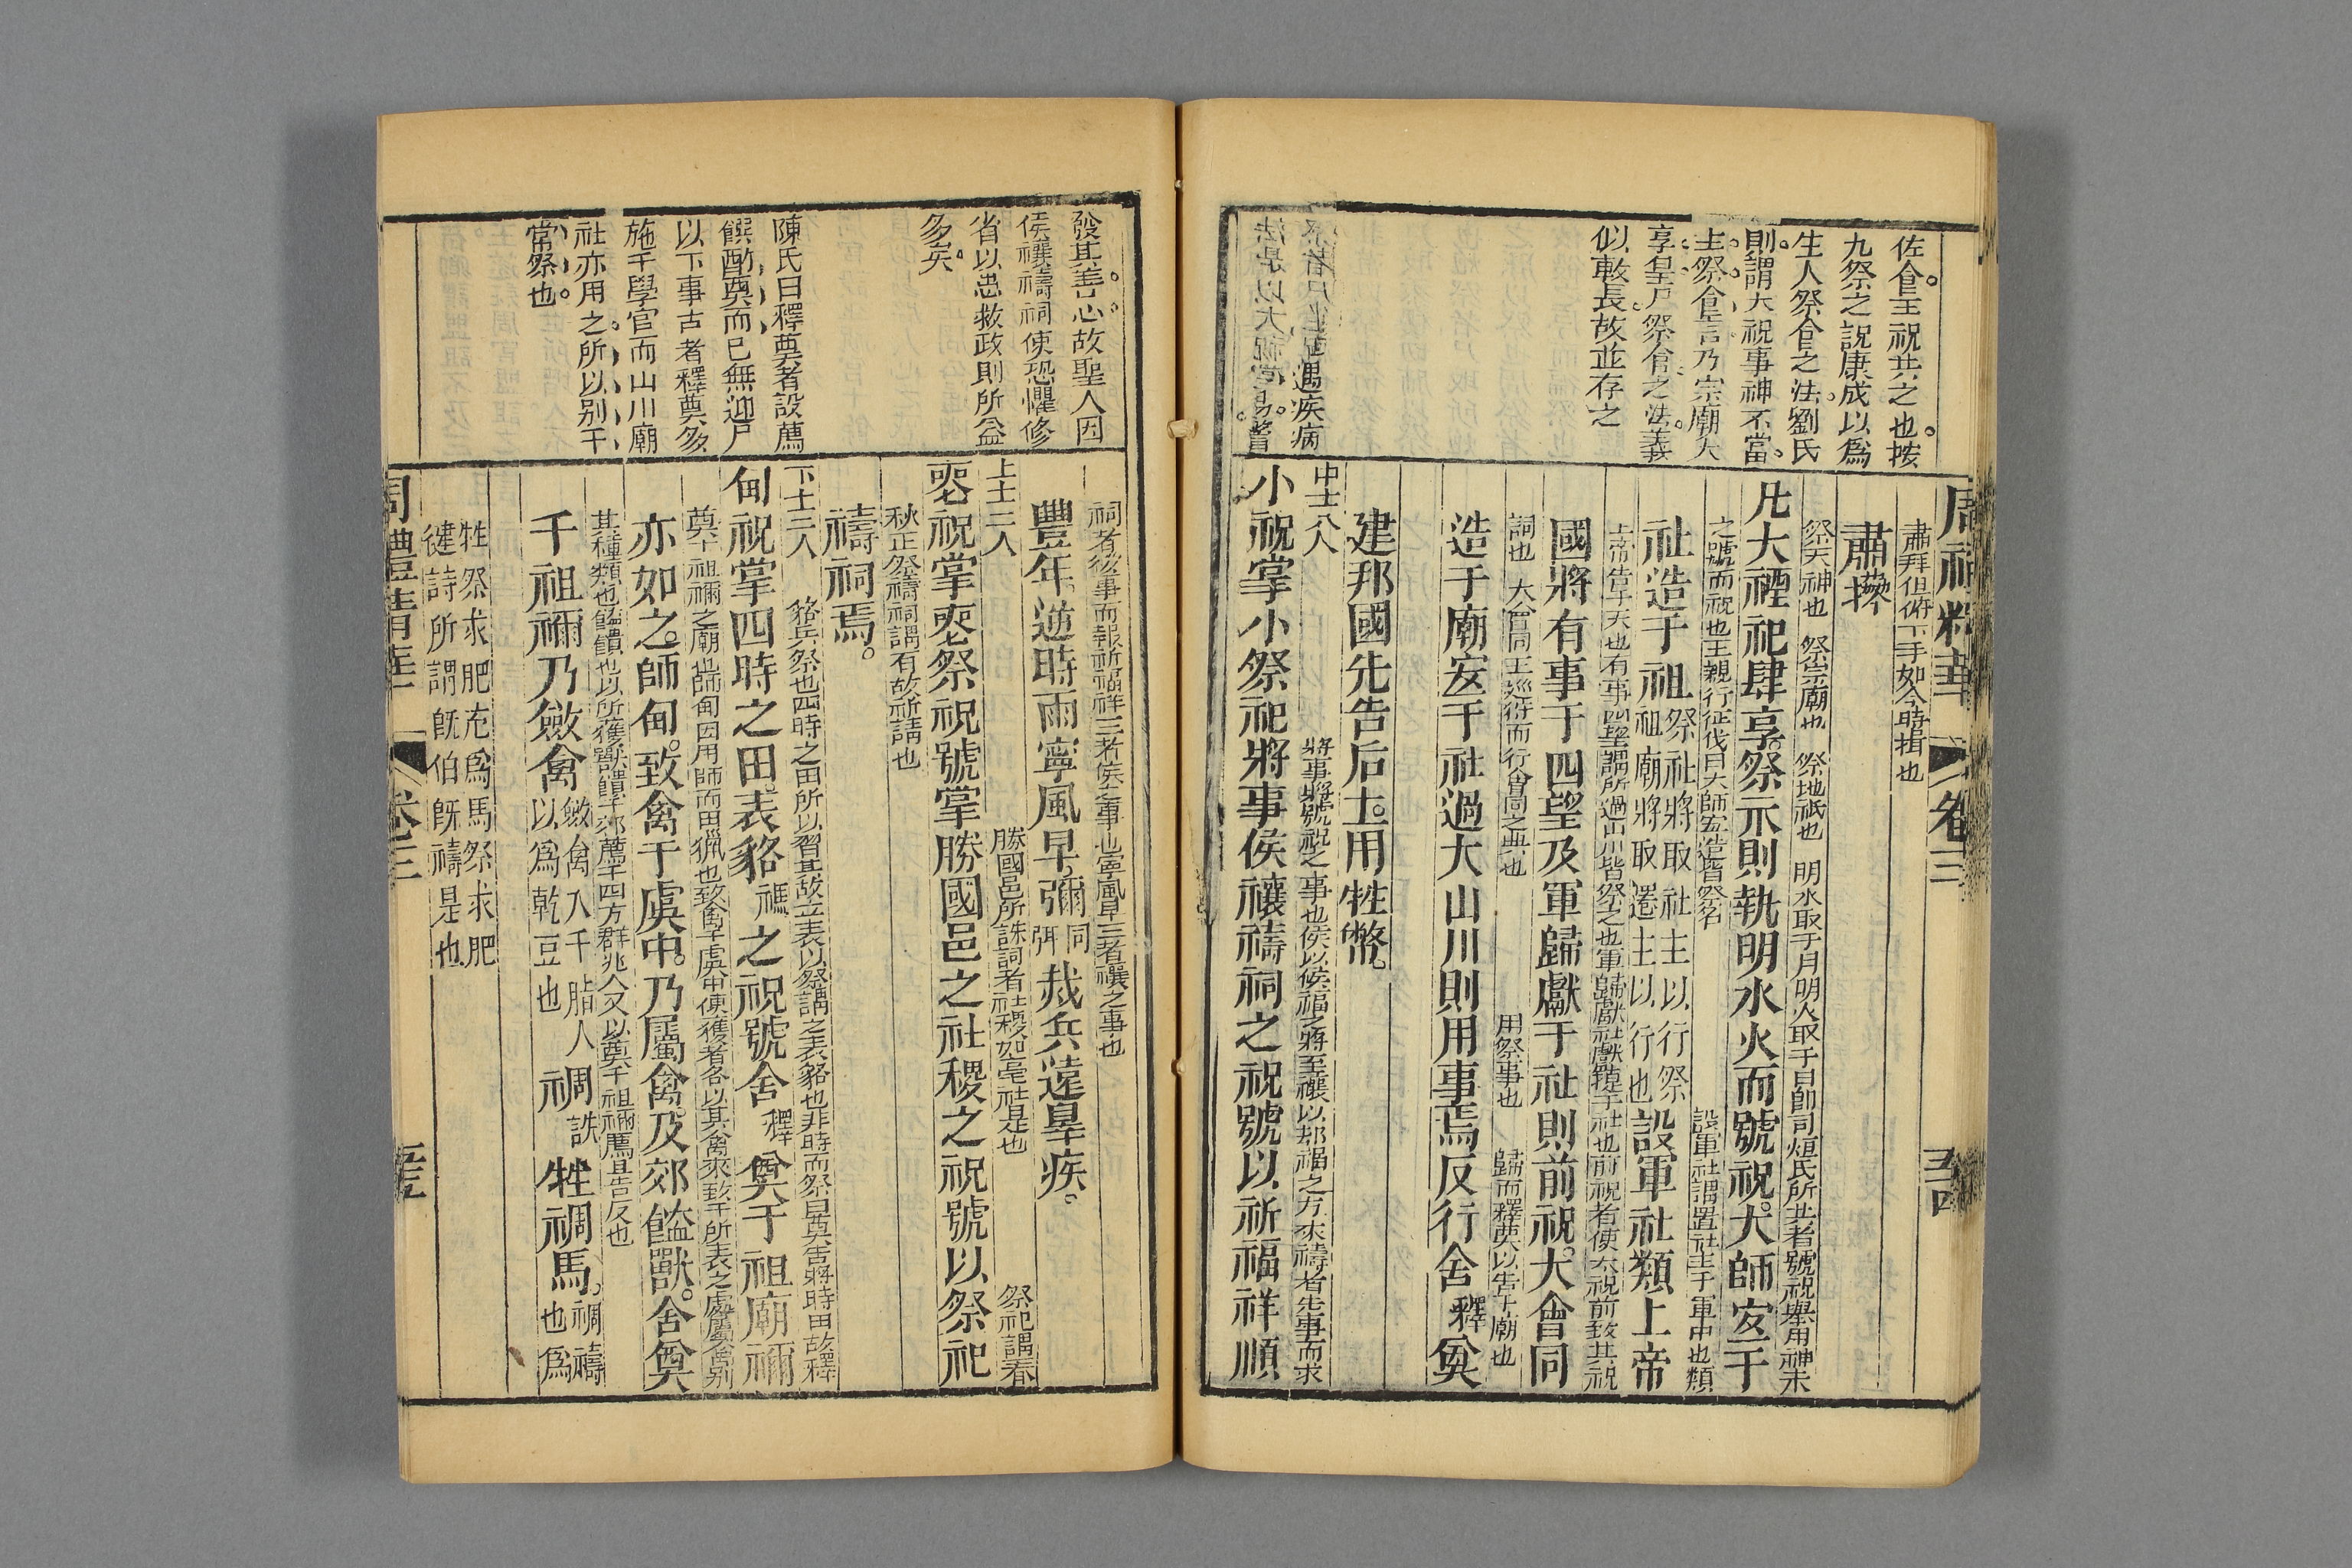 周禮精華 卷三 五四
佐食至祝共之也按
九祭之說康成以爲
生人祭食之法劉氏
則謂大祝事神不當
主祭食言乃宗廟大
享皇尸祭食之法義
似較長故並存之
祭者尸坐 遇疾病
法是以大祝 嘗
肅拜但俯下手如今時揖也
肅撎
祭天神也 祭宗廟也 祭地祇也 明水取于月明火取于日卽司烜氏所共者號祝舉用神未
凡大禋祀肆享祭示則執明水火而號祝大師宜于
之號而祝也王親行征伐曰大師宜造皆祭名 設軍社謂置社主于軍中也類
社造于祖祭社將取社主以行祭祖廟將取遷主以行也設軍社類上帝
上帝告于天也有事四望謂所過山川皆祭之也軍歸獻社獻捷于社也前祝者使大祝前致其祝
國將有事于四望及軍歸獻于社則前祝大會同
詞也 大會同王巡狩而行會同之典也 用祭事也 歸而釋奠以告于廟也
造于廟宜于社過大山川則用事焉反行舍釋奠
建邦國先告后土用牲幣
中士八人 將事將號祝之事也侯以候福之將至禳以却禍之方來禱者先事而求
小祝掌小祭祀將事侯禳禱祠之祝號以祈福祥順
發其善心故聖人因
侯禳禱祠使恐懼修
省以思救政則所益
多矣
陳氏曰釋奠者設薦
饌酌奠而已無迎尸
以下事古者釋奠多
施于學官而山川廟
社亦用之所以别于
常祭也
祠者後事而報祈福祥三者侯之事也寧風旱三者禳之事也
豐年逆時雨寧風旱彌同弭烖兵遠辠疾
上士二人 勝國邑所誅詞者社稷如亳社是也 祭祀謂春
喪祝掌喪祭祝號掌勝國邑之社稷之祝號以祭祀
秋正祭禱祠謂有故祈請也
禱祠焉
下士二人 貉兵祭也四時之田所以習其故立表以祭謂之表貉也非時而祭曰奠告將時田故釋
甸祝掌四時之田表貉禡之祝號舍釋奠于祖廟禰
奠于祖禰之廟也師甸因用師而田獵也致禽于虞中使獲者各以其禽來致于所表之處屬禽别
亦如之師甸致禽于虞中乃屬禽及郊饁獸舍奠
其種類也饁饋也以所獲獸饋于郊薦于四方群兆入又以奠于祖禰薦且告反也
于祖禰乃斂禽斂禽入于腊人以爲乾豆也禂誅牲禂馬禂禱也爲
牲祭求肥充爲馬祭求肥
健詩所謂旣伯旣禱是也
周禮精華 卷三 五五